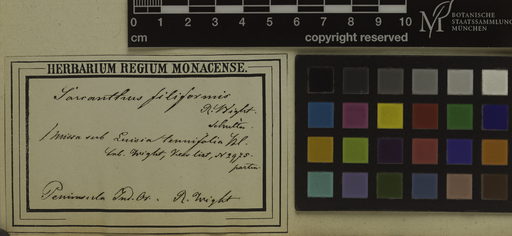 0 1 2 3 4 5 6 7 8 9 10
cm copyright reserved
M BOTANISCHE
STAATSSAMMLUNG
MÜNCHEN
HERBARIUM REGIUM MONACENSE.
Sarcanthus filiformis
R. Wight.
(missa sub Luisia tenuifolia Bl.
Cat. Wight, Kew dist. N 2975.
partim.
Peninsula Ind. Or. R. Wight